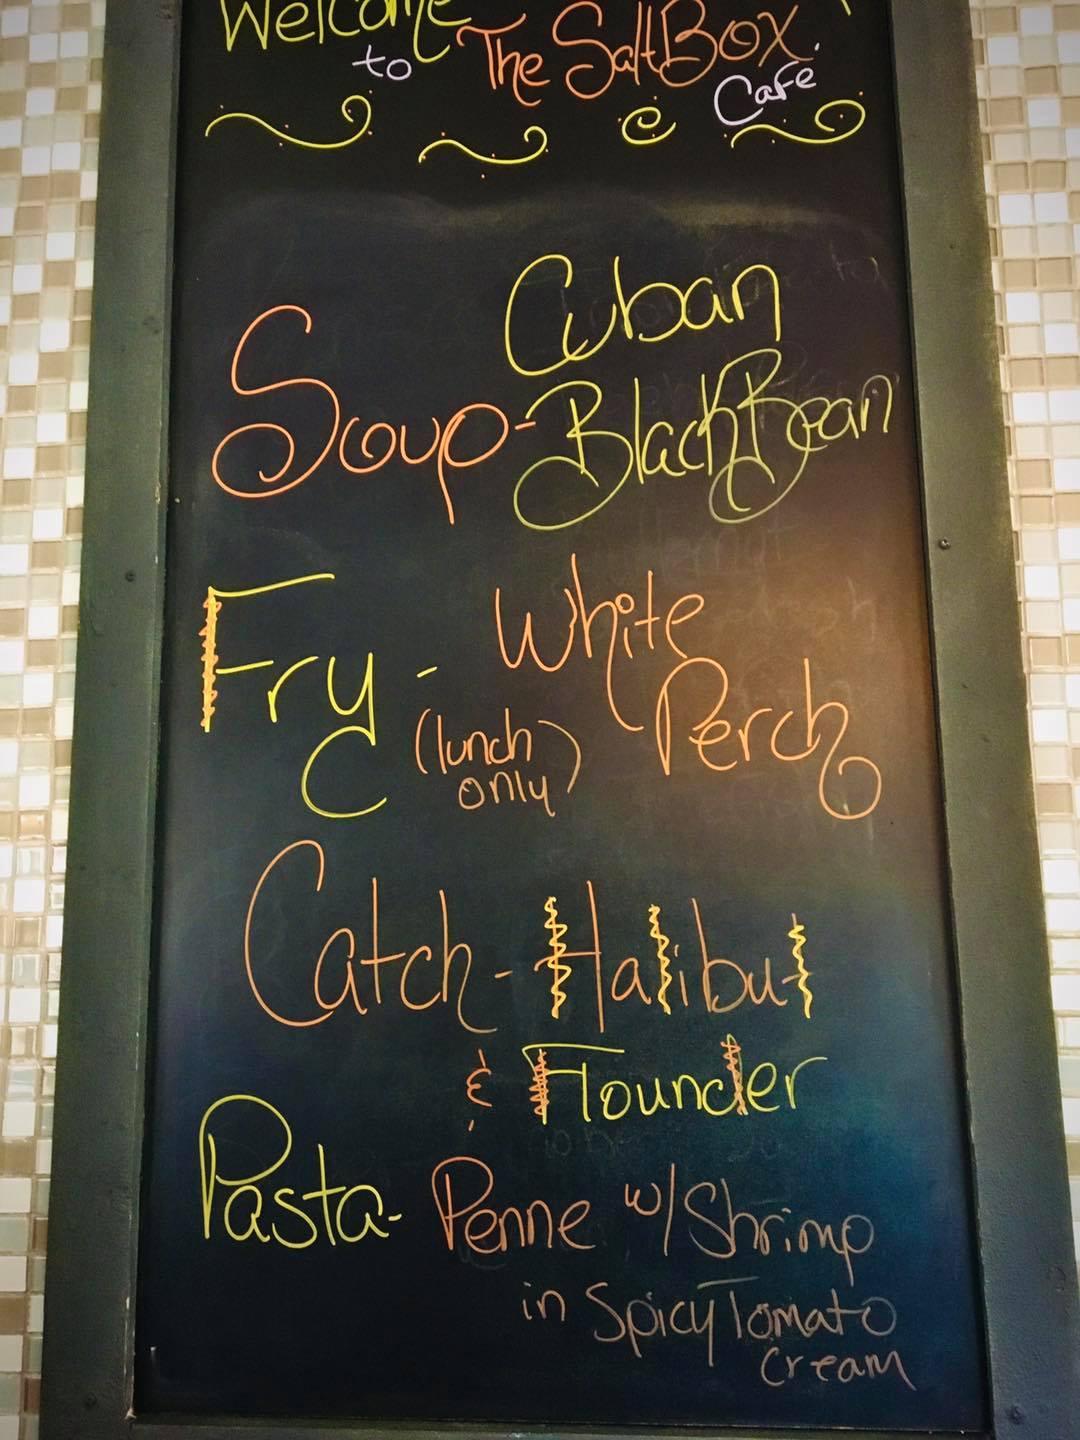 Welcome
to The SaltBox
Cafe
Soup- Cuban
Black Bean
Fry - White
(lunch Perch
only)
Catch - Halibut
& Flounder
Pasta- Penne w/ Shrimp
in Spicy Tomato
Cream